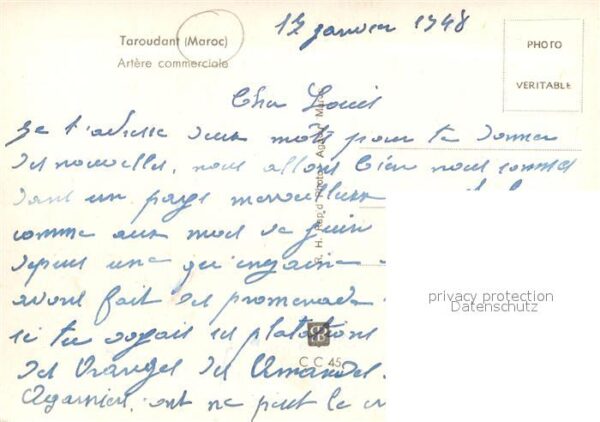 Taroudant (Maroc)
Artère commerciale
12 janvier 1948
PHOTO
VERITABLE
Cher Louis
Je t'adresse deux mots pour te donner
des nouvelles, nous allons bien nous sommes
dans un pays merveilleux
comme aux mois de Juin
depuis une quinzaine
avons fait des promenades
si tu voyais ses platations
des Oranges des Amandes.
ont ne peut le
R. H. Rapid Photo, Agadir, Maroc
C C 45
privacy protection
Datenschutz